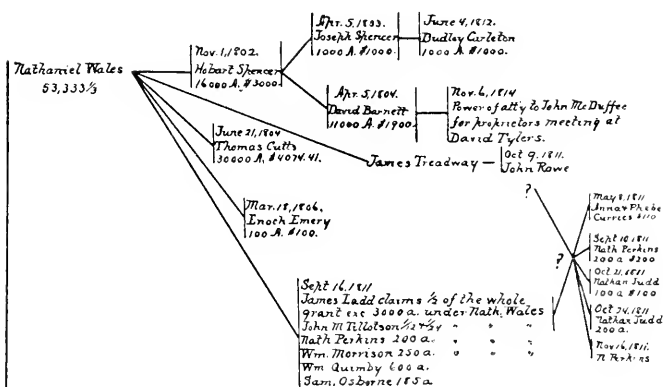 Nathaniel Wales
53,333⅓
Nov. 1, 1802.
Hobart Spencer
16000 A. $3000.
Apr. 5, 1803.
Joseph Spencer
1000 A. $1000.
June 4, 1812.
Dudley Carleton
1000 A. $1000.
Apr. 5, 1804.
David Barnett
11000 A. $1900.
Nov. 6, 1814
Power of atty to John McDuffee
for proprietors meeting at
David Tylers.
June 21, 1804
Thomas Cutts
30000 A. $4074.41.
James Treadway
Oct 9, 1811.
John Rowe
Mar. 18, 1806.
Enoch Emery
100 A. $100.
?
?
May 8, 1811
Anna & Phebe
Curriers $110
Sept 10, 1811
Nath Perkins
200 a $200
Oct 21, 1811
Nathan Judd
100 a $100
Oct 24, 1811
Nathan Judd
200 a.
Nov 16, 1811.
N Perkins
Sept 16, 1811
James Ladd claims ½ of the whole
grant exc 3000 a. under Nath. Wales
John M Tillotson " " "
Nath Perkins 200 a. " " "
Wm. Morrison 250 a. " " "
Wm Quimby 600 a.
Sam. Osborne 185 a